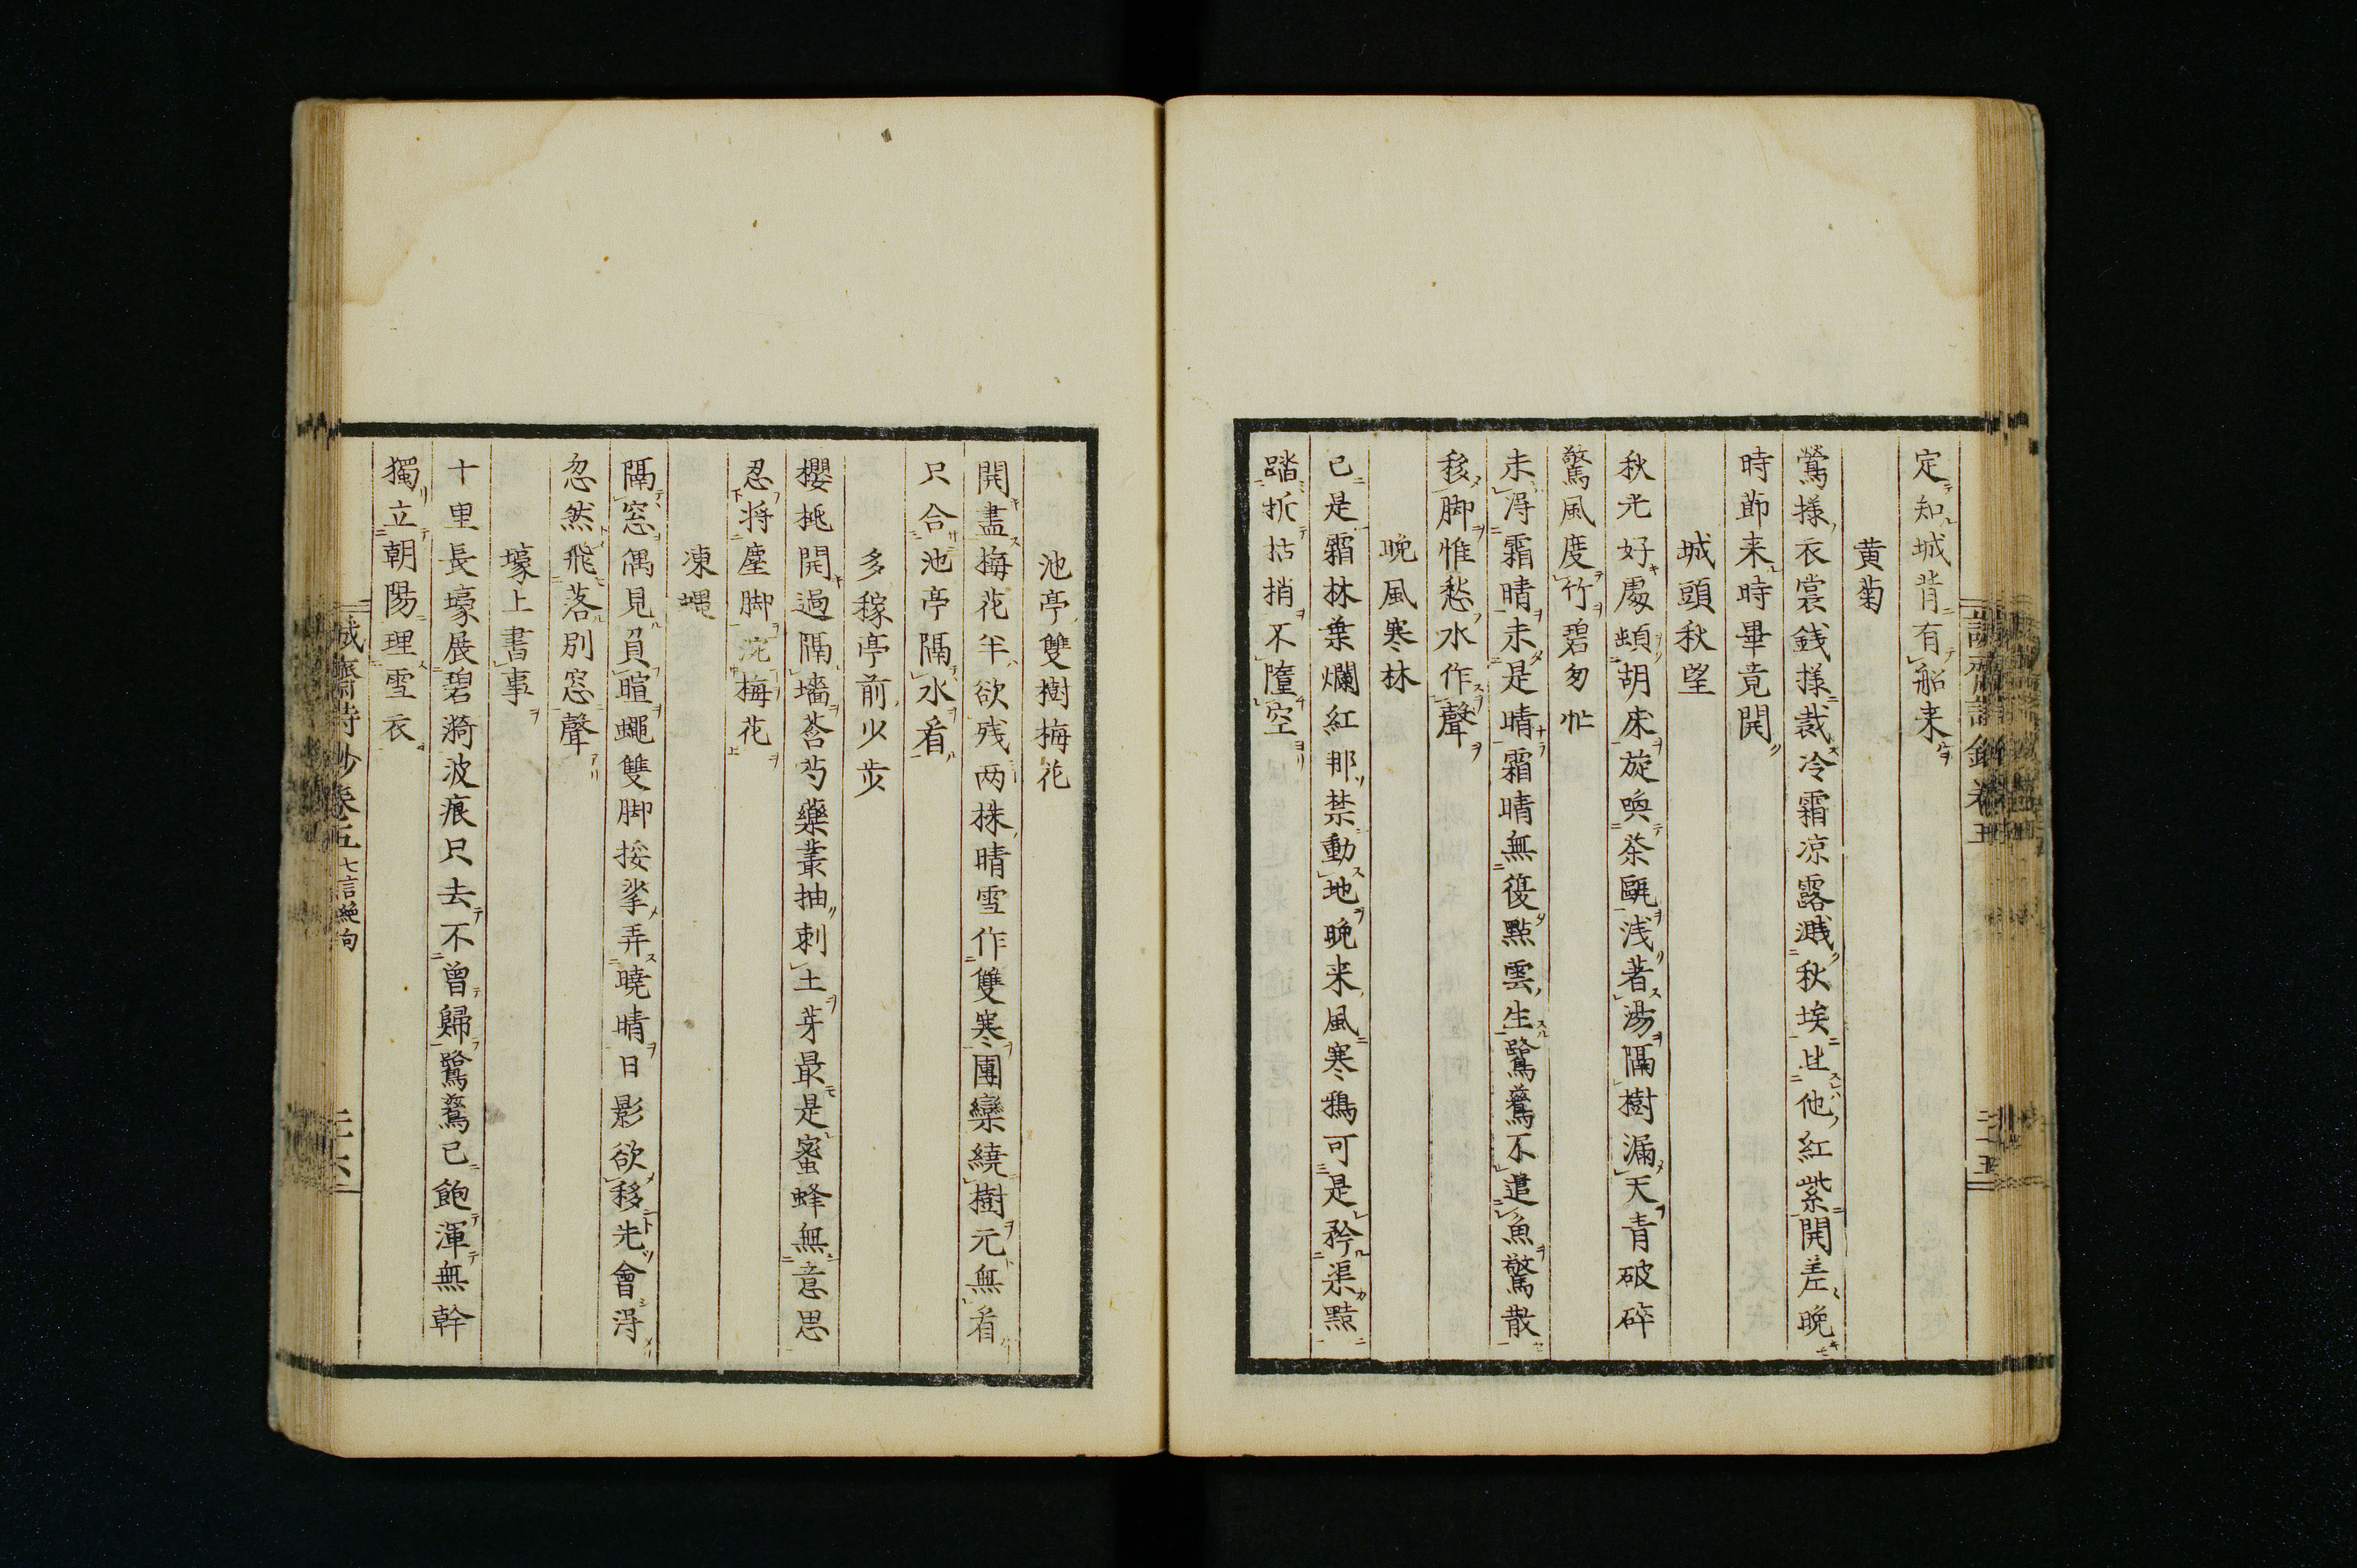 定知城背有船来
黄菊
鶯様衣裳銭様裁冷霜凉露濺秋埃比他紅紫開差晩
時節来時畢竟開
城頭秋望
秋光好處頓胡床旋喚茶甌浅著湯隔樹漏天青破碎
驚風度竹碧匆忙
未得霜晴未是晴霜晴無復點雲生鷺鶿不遣魚驚散
移脚惟愁水作聲
晩風寒林
已是霜林葉爛紅那禁動地晩来風寒鴉可是矜渠黠
踏折枯梢不墮空
池亭雙樹梅花
開盡梅花半欲残两株晴雪作雙寒團欒繞樹元無看
只合池亭隔水看
多稼亭前少歩
櫻桃開過隔墻荅芍藥叢抽刺土芽最是蜜蜂無意思
忍将塵脚涴梅花
凍蝿
隔窓偶見負暄蠅雙脚挼挲弄曉晴日影欲移先會得
忽然飛落別窓聲
壕上書事
十里長壕展碧漪波痕只去不曾歸鷺鶿已飽渾無幹
獨立朝陽理雪衣
誠齋詩抄巻五 七言絶句